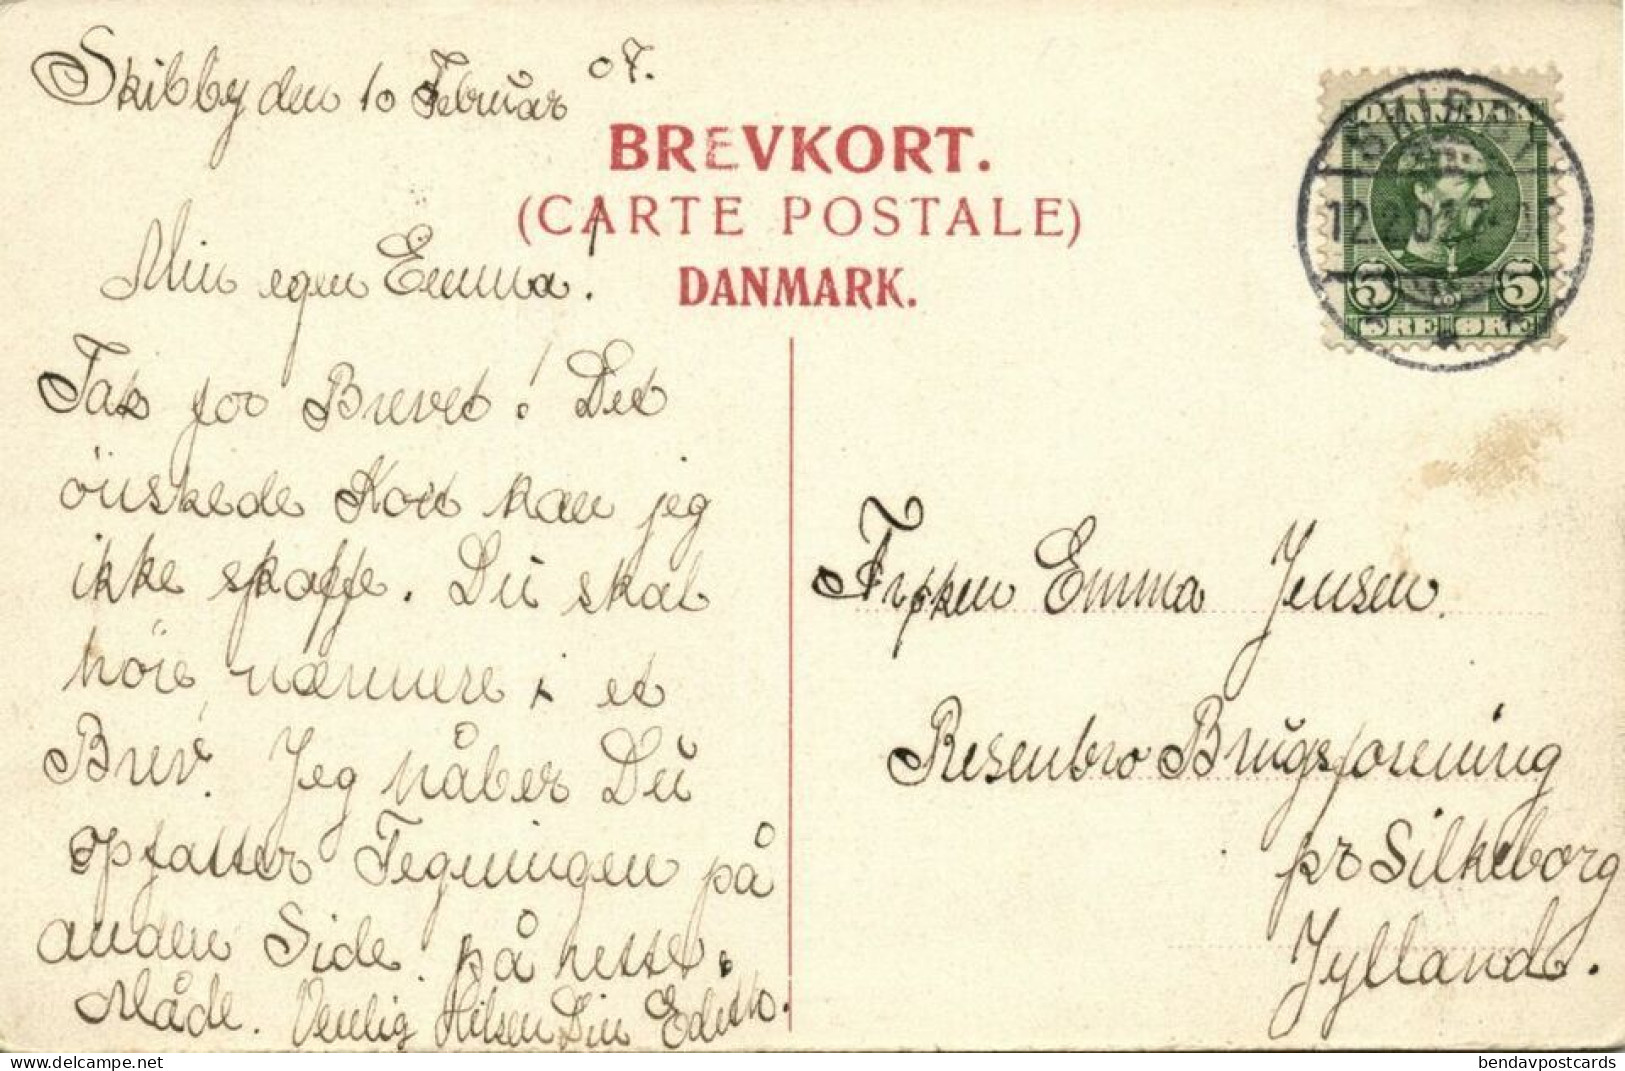 Skibby den 10 Februar 07.
BREVKORT.
(CARTE POSTALE)
DANMARK.
Min egen Emma!
Tak for Brevet! Det
önskede Kort kan jeg
ikke skaffe. Du skal
höre nærmere i et
Brev. Jeg håber Du
opfatter Tegningen på
anden Side på rette
Måde. Venlig Hilsen Din Edith.
SKIBBY
12.2.07
5 5
ØRE ØRE
Frøken Emma Jensen.
Resenbro Brugsforening
pr Silkeborg
Jylland.
bendavpostcards